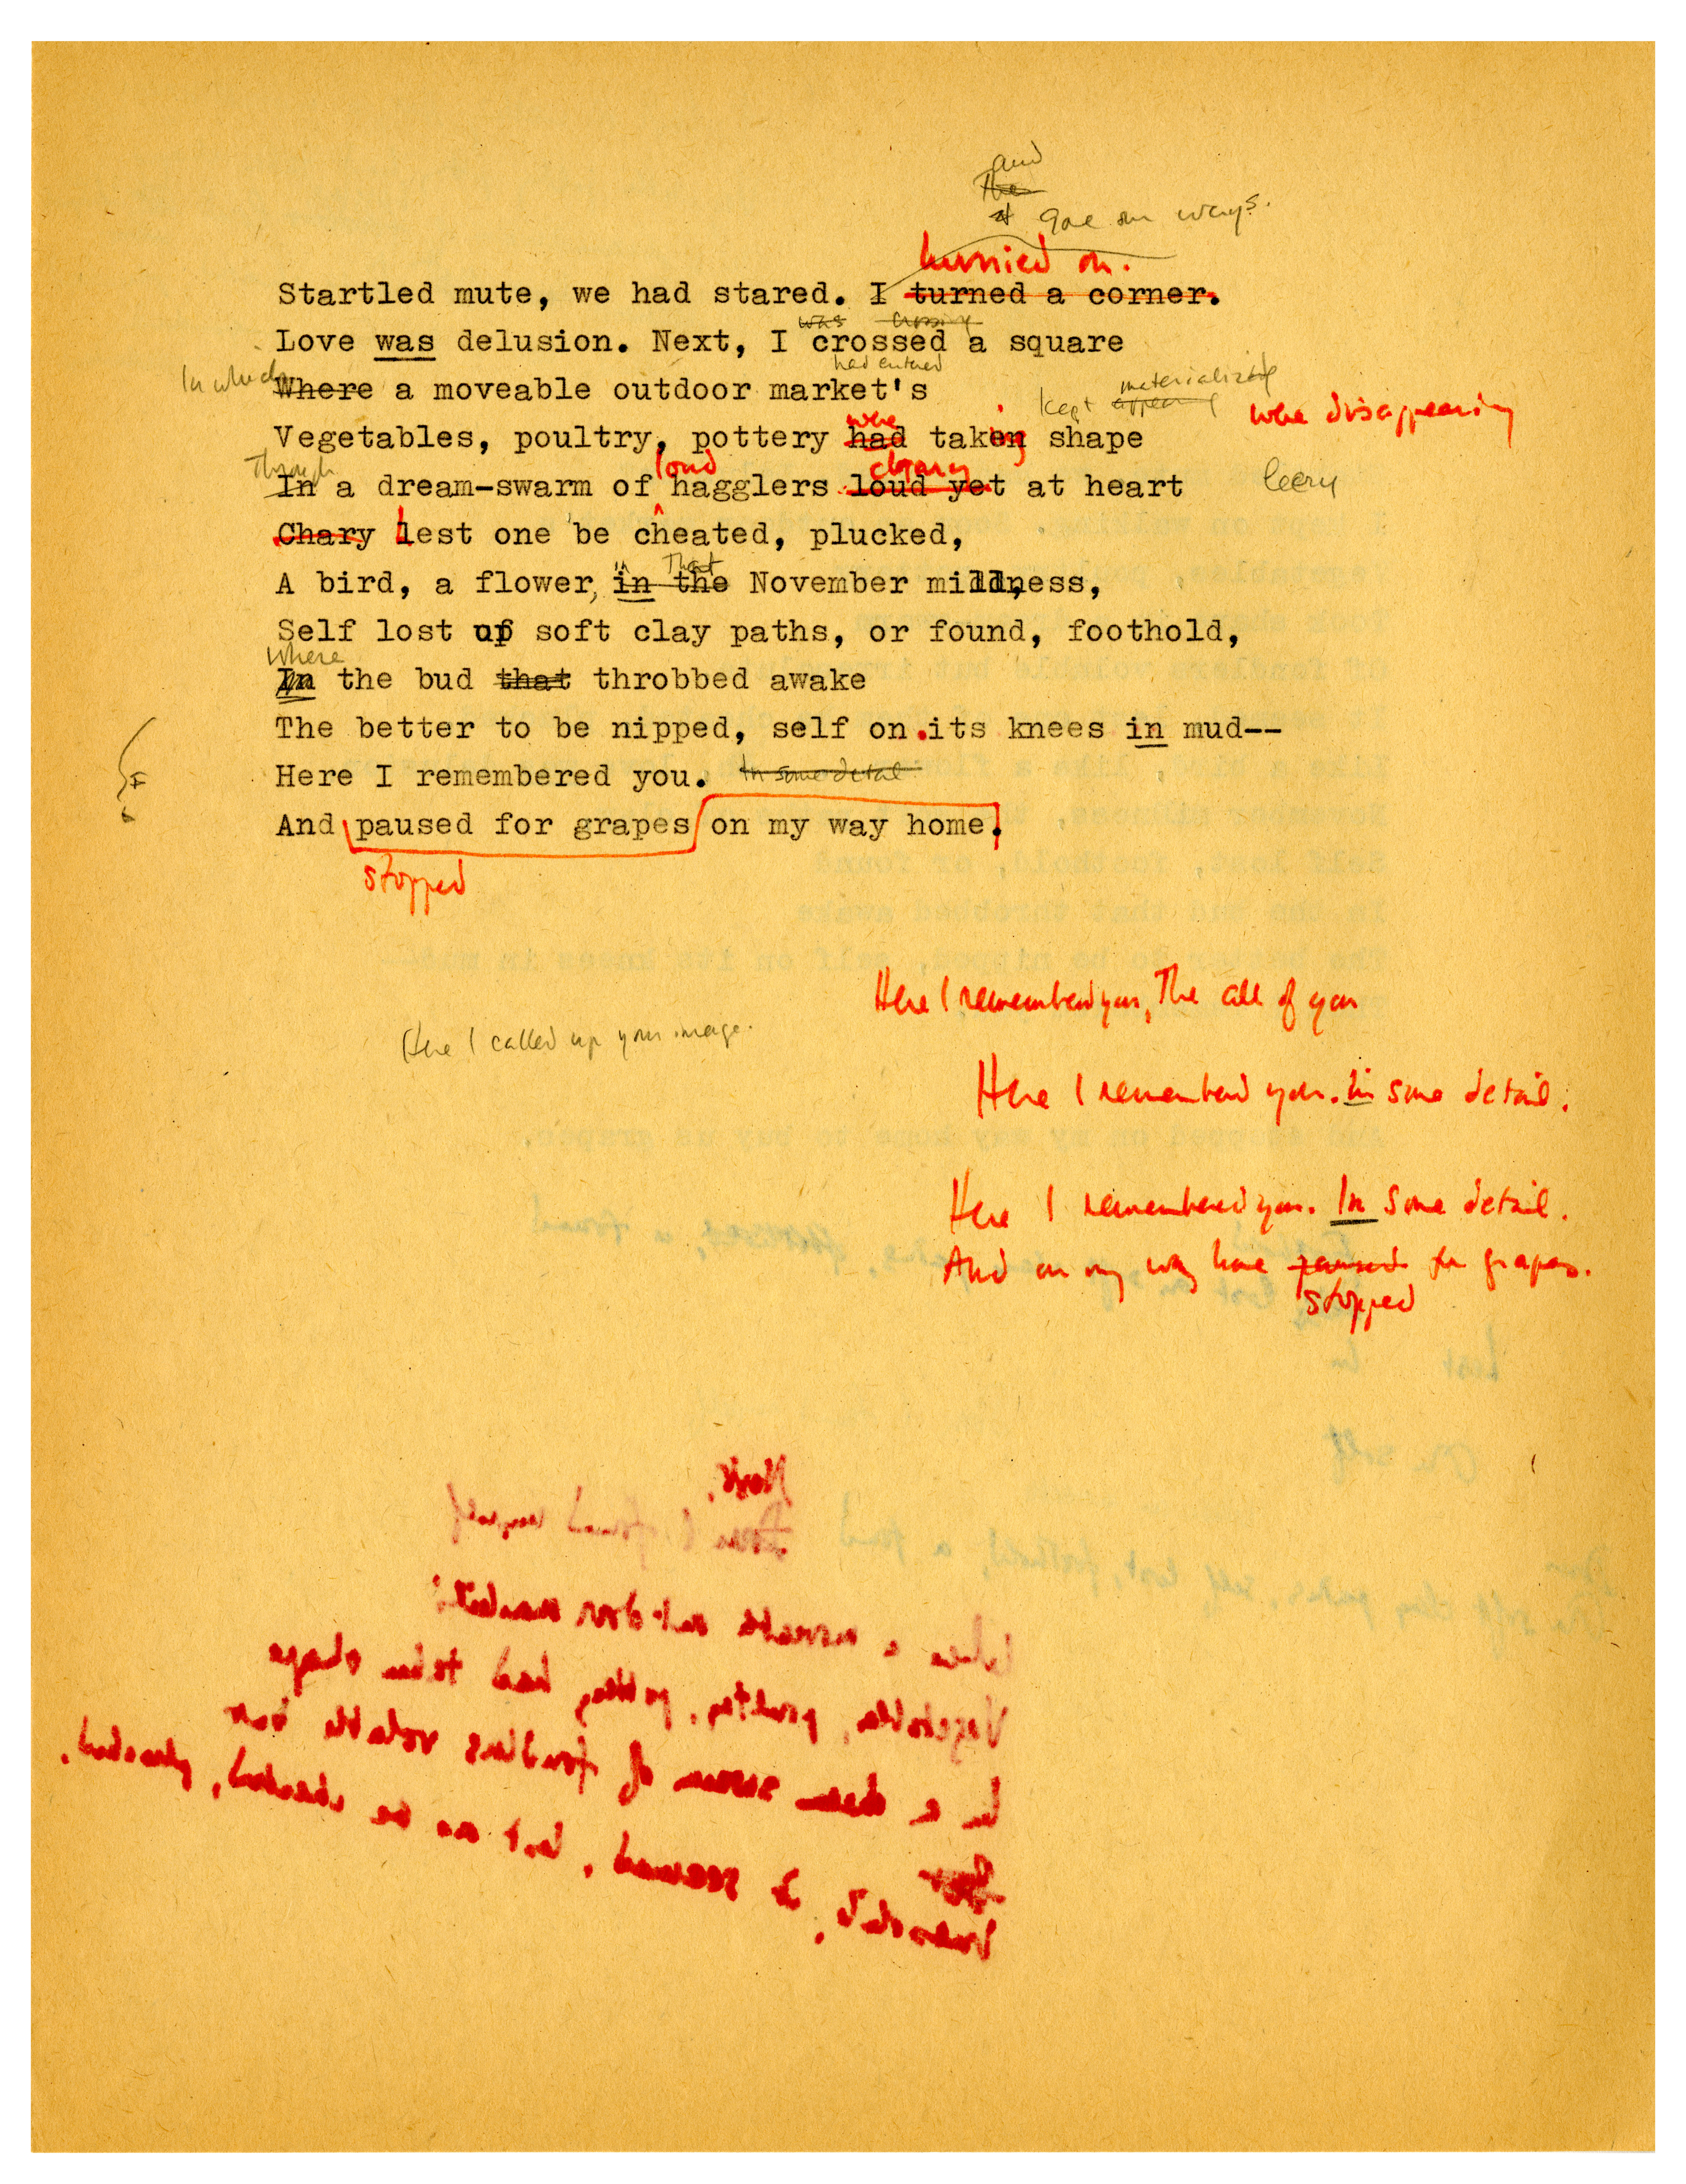 and
The
gone our ways.
hurried on.
Startled mute, we had stared. I turned a corner.
was crossing
Love was delusion. Next, I crossed a square
had entered
In which
Where a moveable outdoor market's
kept appearing materializing were disappearing
were
Vegetables, poultry, pottery had taken shape
ing
Through loud chary
In a dream-swarm of hagglers loud yet at heart leery
Chary lest one be cheated, plucked,
in that
A bird, a flower, in the November mildness,
Self lost up soft clay paths, or found, foothold,
Where
In the bud that throbbed awake
The better to be nipped, self on its knees in mud--
Here I remembered you. In some detail
And paused for grapes on my way home.
stopped
Here I remembered you, The all of you
Here I called up your image.
Here I remembered you. In some detail.
Here I remembered you. In some detail.
And on my way home paused for grapes.
stopped
Next,
I found myself
Where a moveable outdoor market's
Vegetables, poultry, pottery, had taken shape
In a dream swarm of fondlers volatile but
Irresolute, it seemed, lest one be cheated, plucked,